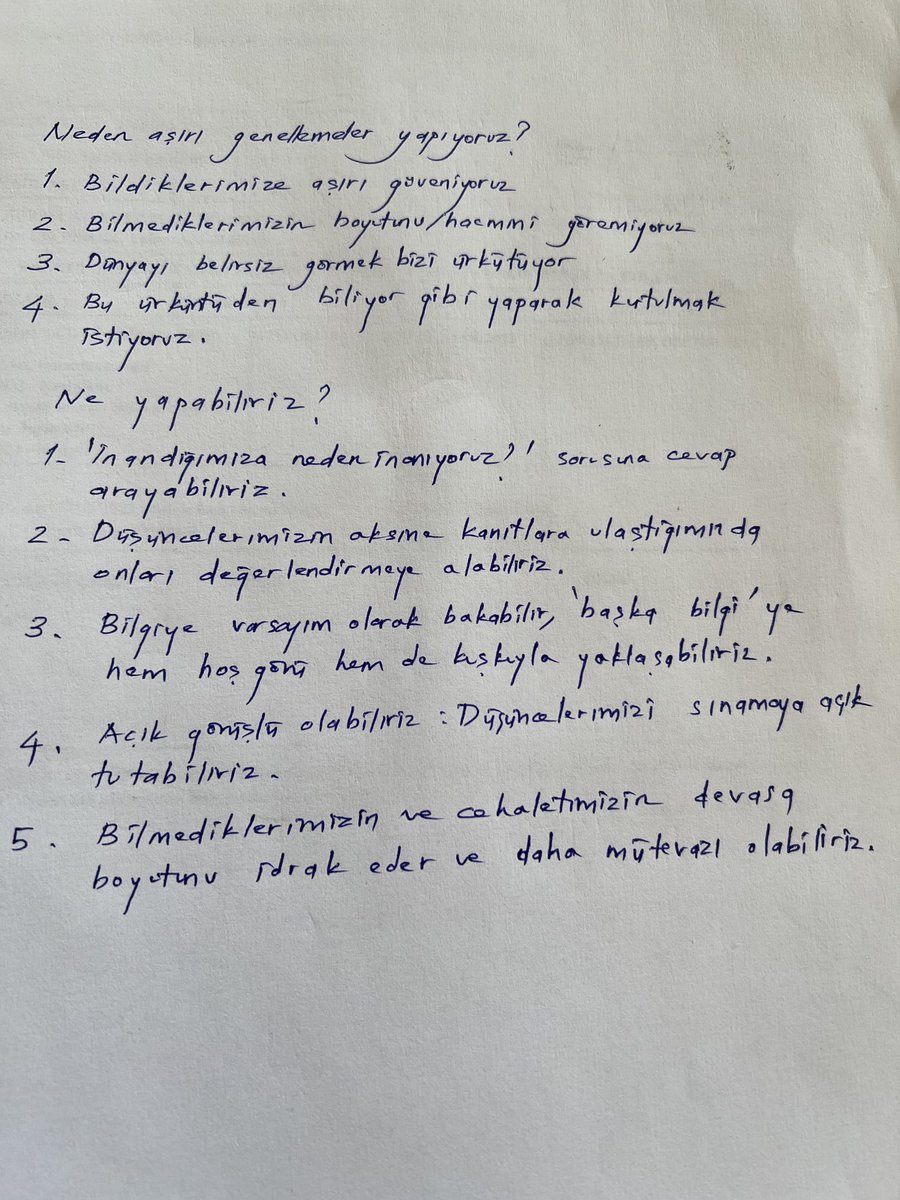 Neden aşırı genelkmeler yapıyoruz?
1. Bildiklerimize aşırı güveniyoruz
2. Bilmediklerimizin boyutunu/hacmmi göremiyoruz
3. Dünyayı belirsiz görmek bizi ürkütüyor
4. Bu ürküntüden biliyor gibi yaparak kutulmak
istiyoruz.
Ne yapabiliriz?
1- 'İnandığımıza neden inanıyoruz?' sorusuna cevap
arayabiliriz.
2- Düşüncelerimizin aksine kanıtlara ulaştığımında
onları değerlendirmeye alabiliriz.
3. Bilgiye varsayım olarak bakabilir, 'başka bilgi'ye
hem hoş görü hem de kuşkuyla yaklaşabiliriz.
4. Açık görüşlü olabiliriz : Düşüncelerimizi sınamaya açık
tutabiliriz.
5. Bilmediklerimizin ve cehaletimizin devasa
boyutunu idrak eder ve daha mütevazı olabiliriz.